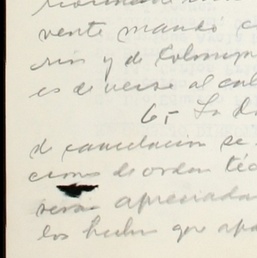 vente mandó
rios y de Colomp
es de verse al cal
6,- La d
de cancelacion se
cions de orden téc
seran apreciada
los hechos que apa